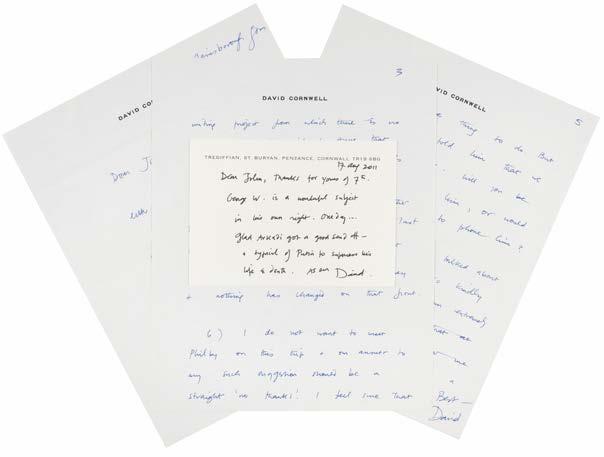 DAVID COR
Dear J
with
3
DAVID CORNWELL
writing project from which there is no
TREGIFFIAN, ST. BURYAN, PENZANCE, CORNWALL TR19 6BG
2011
Dear John, Thanks for yours of 7th.
George W. is a wonderful subject
in his own right. One day...
Glad Arkadi got a good send off –
& typical of Putin to supervise his
life & death. As ever David.
+ nothing has changed on that front.
6) I do not want to meet
Philby on this trip + our answer to
any such suggestion should be a
straight 'no thanks'! I feel sure that
DAVID CORNWELL
5
thing to do. But
told him that we
will you be
him, or would
to phone him?
talked about
kindly
extremely
that
me
a
Best –
David